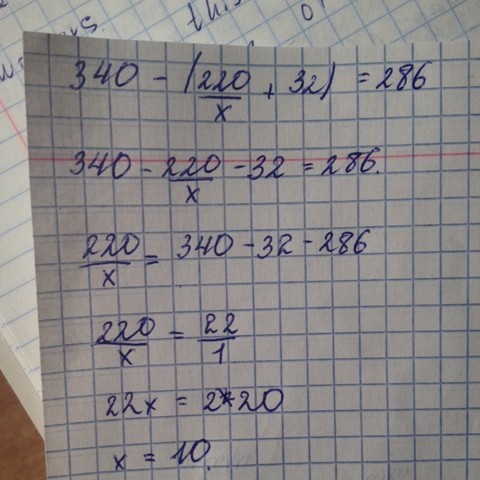 340 - (220/x + 32) = 286
340 - 220/x - 32 = 286.
220/x = 340 - 32 - 286
220/x = 22/1
22x = 220
x = 10.